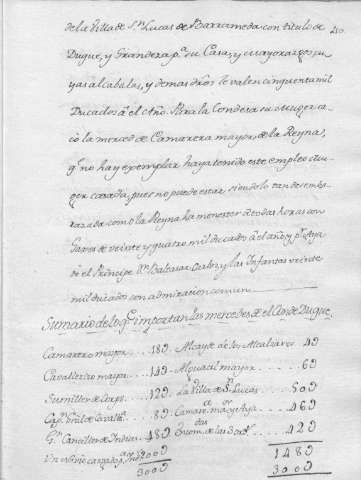 de la Villa de S.n Lucas de Barrameda con titulo de
Duque, y Grandeza p.a su Casa, y mayorazgos, cu
yas alcabalas, y demas dros le valen cinquenta mil
Ducados â el Año. Para la Condesa su Muger sa
có la merced de Camarera mayor, de la Reyna,
q.e no hay exemplar haya tenido este empleo Mu
ger casada, pues no puede estar, siendolo tan desemba
razada como la Reyna ha menester â todas horas con
Gages de veinte y quatro mil ducados â el año, y p.r Aya
de el Principe D.n Baltasar Carlos, y las Infantas veinte
mil ducados con admiracion comun.
Sumario de lo q.e importan las mercedes de el Conde Duque
Camarero mayor 18
Alcayde de los Alcazares 4
Cavallerizo mayor 14
Alguacil mayor 6
Sumiller de Corps 12
La Villa de S.n Lucas 50
Cap.n Gral de Cavall.a
Camar.a mayor y Aya 46
G.n Canciller de Indias 48
Encom.das de las 3 ord.s 42
Un navio cargado p.a Ind.s 200
148
300
300